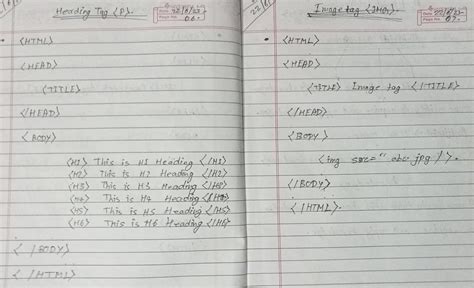 Heading Tag <P>.
<HTML>
<HEAD>
<TITLE>
</HEAD>
<BODY>
<H1> This is H1 Heading </H1>
<H2> This is H2 Heading </H2>
<H3> This is H3 Heading </H3>
<H4> This is H4 Heading </H4>
<H5> This is H5 Heading </H5>
<H6> This is H6 Heading </H6>
</BODY>
</HTML>
Image tag <IMG>.
<HTML>
<HEAD>
<TITLE> Image tag </TITLE>
</HEAD>
<BODY>
<img src="abc.jpg"/>.
</BODY>
</HTML>.